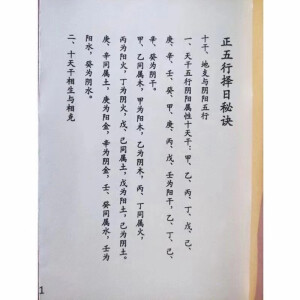 正五行择日秘诀
十干、地支与阴阳五行
一、天干五行阴阳属性十天干：甲、乙、丙、丁、戊、己、
庚、辛、壬、癸、甲、庚、丙、戊、壬为阳干，乙、丁、己、
辛、癸为阴干。
甲、乙同属木，甲为阳木，乙为阴木，丙、丁同属火，
丙为阳火，丁为阴火，戊、己同属土，戊为阳土，己为阴土。
庚、辛同属土，庚为阳金，辛为阴金，壬、癸同属水，壬为
阳水，癸为阴水。
二、十天干相生与相克
1